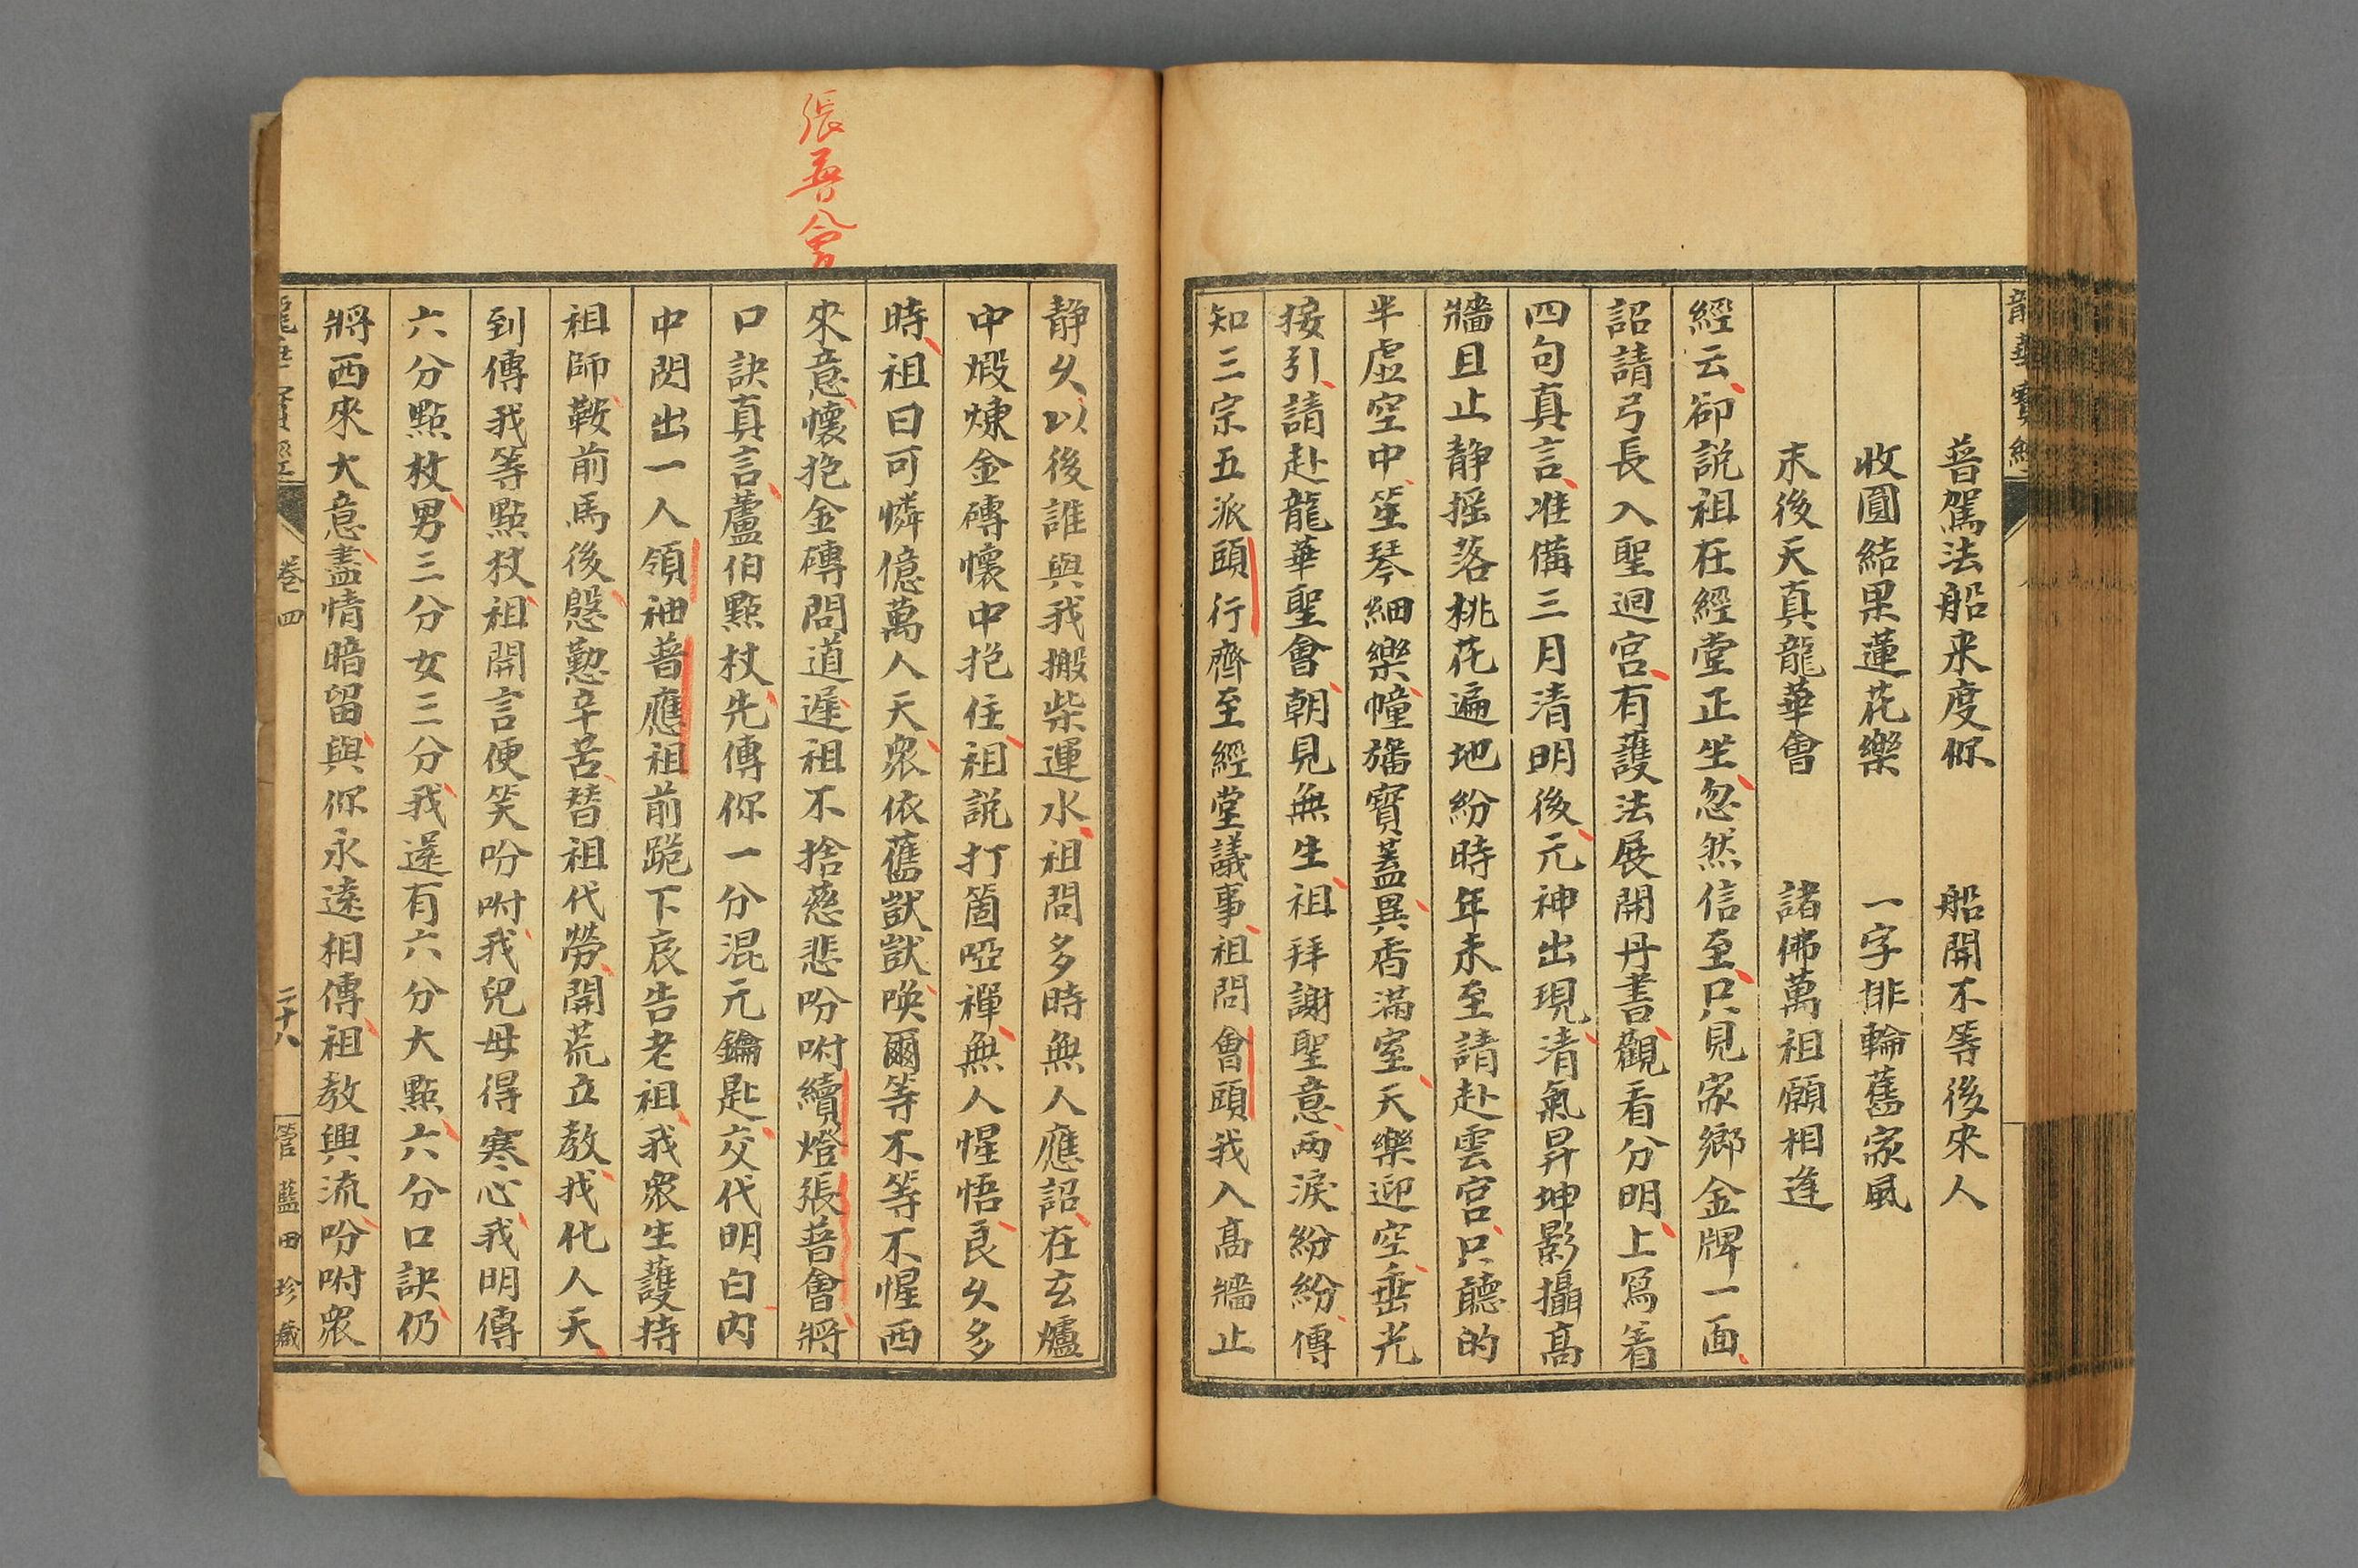 龍華寶經
普駕法船来度你 船開不等後來人
收圓結果蓮花樂 一字排輪舊家風
末後天真龍華會 諸佛萬祖願相逢
經云卻説祖在經堂正坐忽然信至只見家鄉金牌一面
詔請弓長入聖迴宮有護法展開丹書觀看分明上寫着
四句真言准備三月清明後元神出現清氣昇坤影攝髙
牆且止静摇落桃花遍地紛時年未至請赴雲宮只聽的
半虛空中笙琴細樂幢旛寶蓋異香滿室天樂迎空垂光
接引請赴龍華聖會朝見無生祖拜謝聖意两淚紛紛傳
知三宗五派頭行齊至經堂議事祖問會頭我入髙牆止
張普會
静久以後誰與我搬柴運水祖問多時無人應詔在玄爐
中煅煉金磚懷中抱住祖説打箇啞禪無人惺悟良久多
時祖曰可憐億萬人天衆依舊獃獃唤爾等不等不惺西
來意懷抱金磚問道遲祖不捨慈悲吩咐續燈張普會將
口訣真言蘆伯點杖先傳你一分混元鑰匙交代明白内
中閃出一人領袖普應祖前跪下哀告老祖我衆生護持
祖師鞍前馬後慇懃辛苦替祖代勞開荒立教我化人天
到傳我等點杖祖開言便笑吩咐我兒母得寒心我明傳
六分點杖男三分女三分我還有六分大點六分口訣仍
將西來大意盡情暗留與你永遠相傳祖教興流吩咐衆
龍華寶經 卷四 二十八 管藍田珍藏